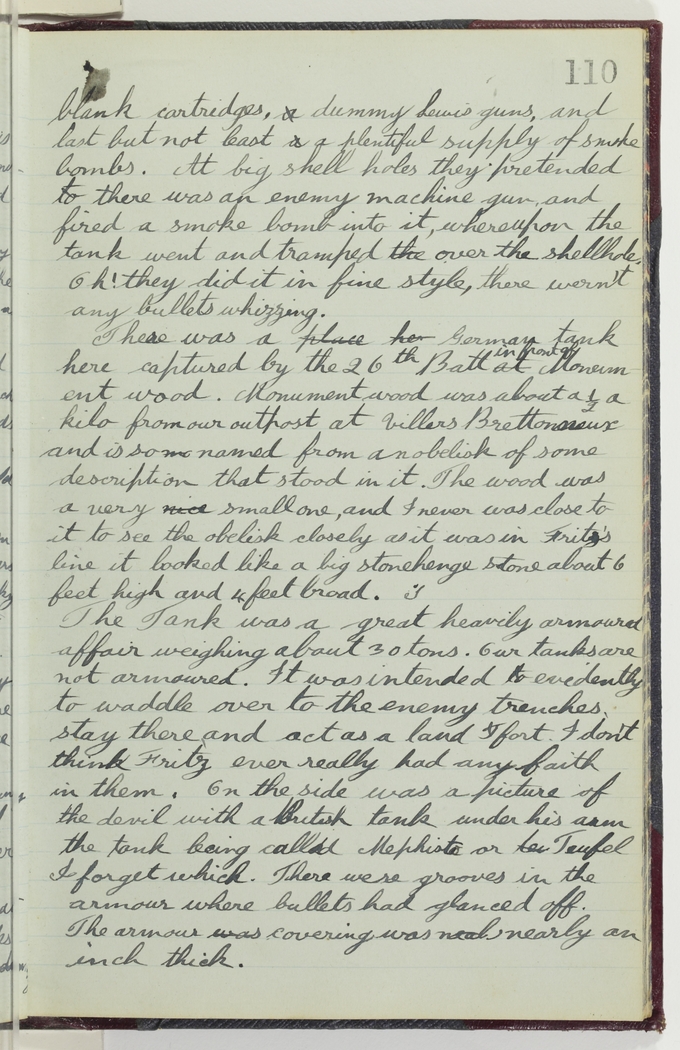 110
blank cartridges, a dummy Lewis guns, and
last but not least a a plentiful supply of smoke
bombs. At big shell holes they pretended
to there was an enemy machine gun, and
fired a smoke bomb into it, whereupon the
tank went and tramped the over the shellhole.
Oh! they did it in fine style, there wern't
any bullets whizzing.
There was a place her German tank
here captured by the 26th Batt at in front of Monum-
ent wood. Monument wood was about a ½ a
kilo from our outpost at Villers Brettonneux
and is so named from an obelisk of some
description that stood in it. The wood was
a very nice small one, and I never was close to
it to see the obelisk closely as it was in Fritz's
line it looked like a big stonehenge stone about 6
feet high and 4 feet broad.
The Tank was a great heavily armoured
affair weighing about 30 tons. Our tanks are
not armoured. It was intended to evidently
to waddle over to the enemy trenches,
stay there and act as a land fort. I don't
think Fritz ever really had any faith
in them. On the side was a picture of
the devil with a British tank under his arm
the tank being called Mephisto or Teufel
I forget which. There were grooves in the
armour where bullets had glanced off.
The armour was covering was nearly an
inch thick.